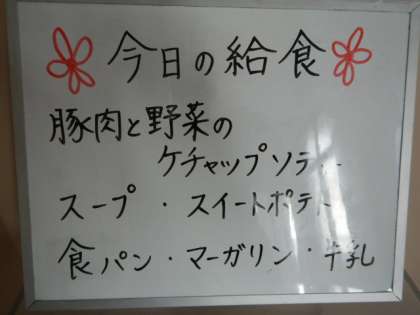 今日の給食
豚肉と野菜の
ケチャップソティー
スープ ・ スイートポテト
食パン ・ マーガリン ・ 牛乳